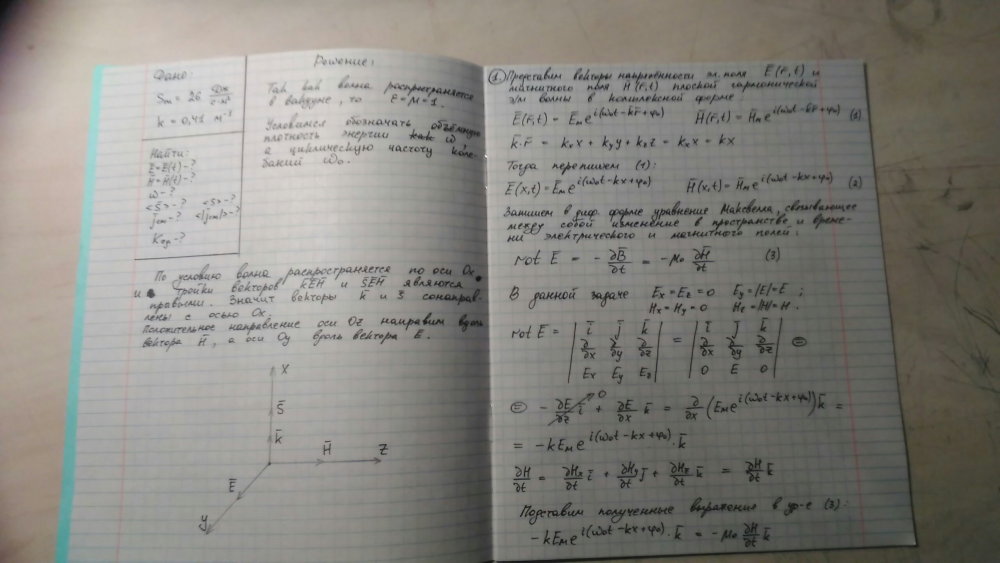 Дано:
Sm = 26 Дж/с·м²
k = 0,41 м⁻¹
Найти:
Ē = Ē(t) - ?
H̄ = H̄(t) - ?
ω - ?
<S̄> - ? <S> - ?
j̄см - ? <|jсм|> - ?
Kед - ?
Решение:
Так как волна распространяется
в вакууме, то ε = μ = 1.
Условимся обозначать объёмную
плотность энергии как w
а циклическую частоту коле-
баний ω₀.
По условию волна распространяется по оси Ox
и тройки векторов k̄ĒH̄ и S̄ĒH̄ являются
правыми. Значит векторы k̄ и S̄ сонаправ-
лены с осью Ox.
Положительное направление оси Oz направим вдоль
вектора H̄, а оси Oy вдоль вектора Ē.
X
S̄
k̄
H̄
Z
Ē
y
1. Представим векторы напряжённости эл. поля Ē(r̄,t) и
магнитного поля H̄(r̄,t) плоской гармонической
э/м волны в комплексной форме:
Ē(r̄,t) = Ēm e^{i(ω₀t - k̄r̄ + φ₀)} H̄(r̄,t) = H̄m e^{i(ω₀t - k̄r̄ + φ₀)} (1)
k̄·r̄ = kₓx + k_y y + k_z z = kₓx = kx
Тогда перепишем (1):
Ē(x,t) = Ēm e^{i(ω₀t - kx + φ₀)} H̄(x,t) = H̄m e^{i(ω₀t - kx + φ₀)} (2)
Запишем в диф. форме уравнение Максвелла, связывающее
между собой изменение в пространстве и време-
ни электрического и магнитного полей:
rot E = - ∂B̄/∂t = -μ₀ ∂H̄/∂t (3)
В данной задаче Ex = Ez = 0 Ey = |E| = E ;
Hx = Hy = 0 Hz = |H| = H .
rot E = | ī j̄ k̄ ; ∂/∂x ∂/∂y ∂/∂z ; Ex Ey Ez | = | ī j̄ k̄ ; ∂/∂x ∂/∂y ∂/∂z ; 0 E 0 | =
= - ∂E/∂z ī + ∂E/∂x k̄ = ∂/∂x (Em e^{i(ω₀t - kx + φ₀)}) k̄ =
= -kEm e^{i(ω₀t - kx + φ₀)} · k̄
∂H/∂t = ∂Hx/∂t ī + ∂Hy/∂t j̄ + ∂Hz/∂t k̄ = ∂H/∂t k̄
Подставим полученные выражения в ур-е (3):
-kEm e^{i(ω₀t - kx + φ₀)} · k̄ = -μ₀ ∂H/∂t k̄